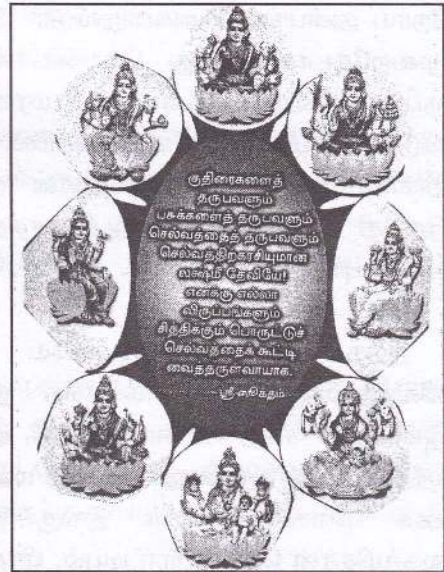 குதிரைகளைத்
தருபவளும்
பசுக்களைத் தருபவளும்
செல்வத்தைத் தருபவளும்
செல்வத்திற்கரசியுமான
லக்ஷ்மி தேவியே!
எனக்கு எல்லா
விருப்பங்களும்
சித்திக்கும் பொருட்டுச்
செல்வத்தைக் கூட்டி
வைத்தருள்வாயாக.
-ஸ்ரீஸூக்தம்